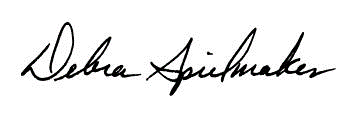 Debra Spielmaker